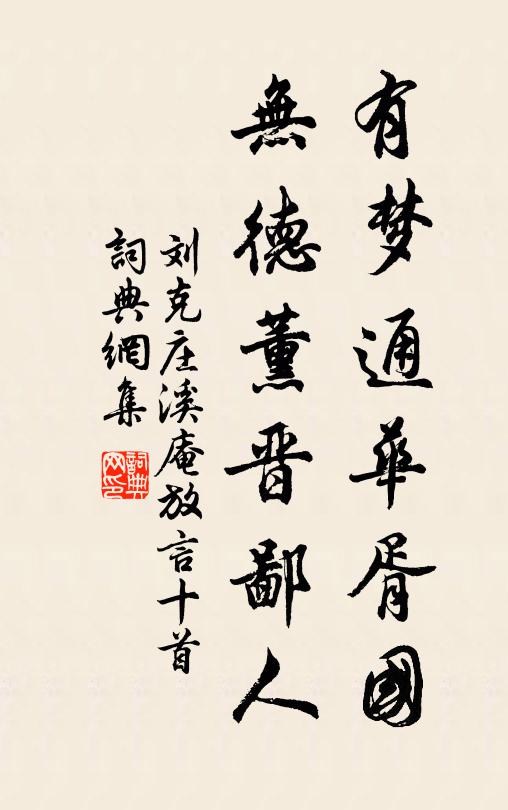 有梦通華胥國
無德薰晋鄙人
刘克庄溪庵放言十首
詞典網集
詞典網印